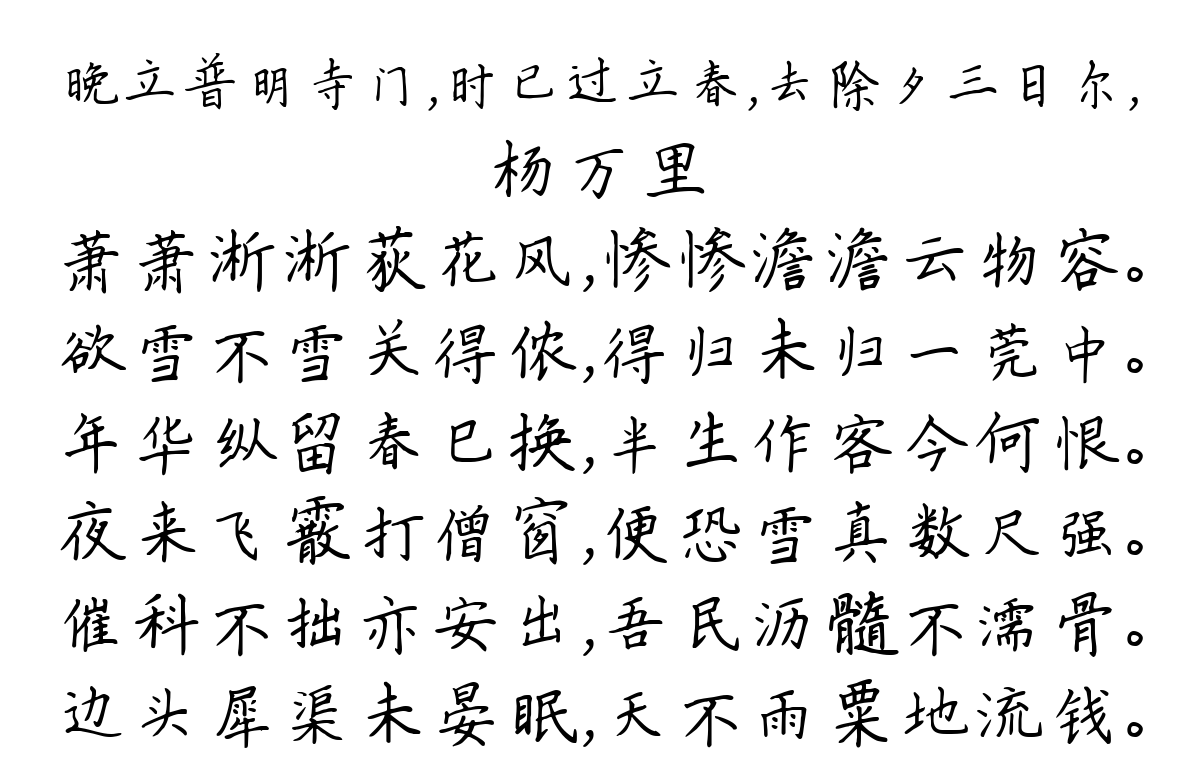 晚立普明寺门,时已过立春,去除夕三日尔,
杨万里
萧萧淅淅荻花风,惨惨澹澹云物容。
欲雪不雪关得侬,得归未归一莞中。
年华纵留春已换,半生作客今何恨。
夜来飞霰打僧窗,便恐雪真数尺强。
催科不拙亦安出,吾民沥髓不濡骨。
边头犀渠未晏眠,天不雨粟地流钱。